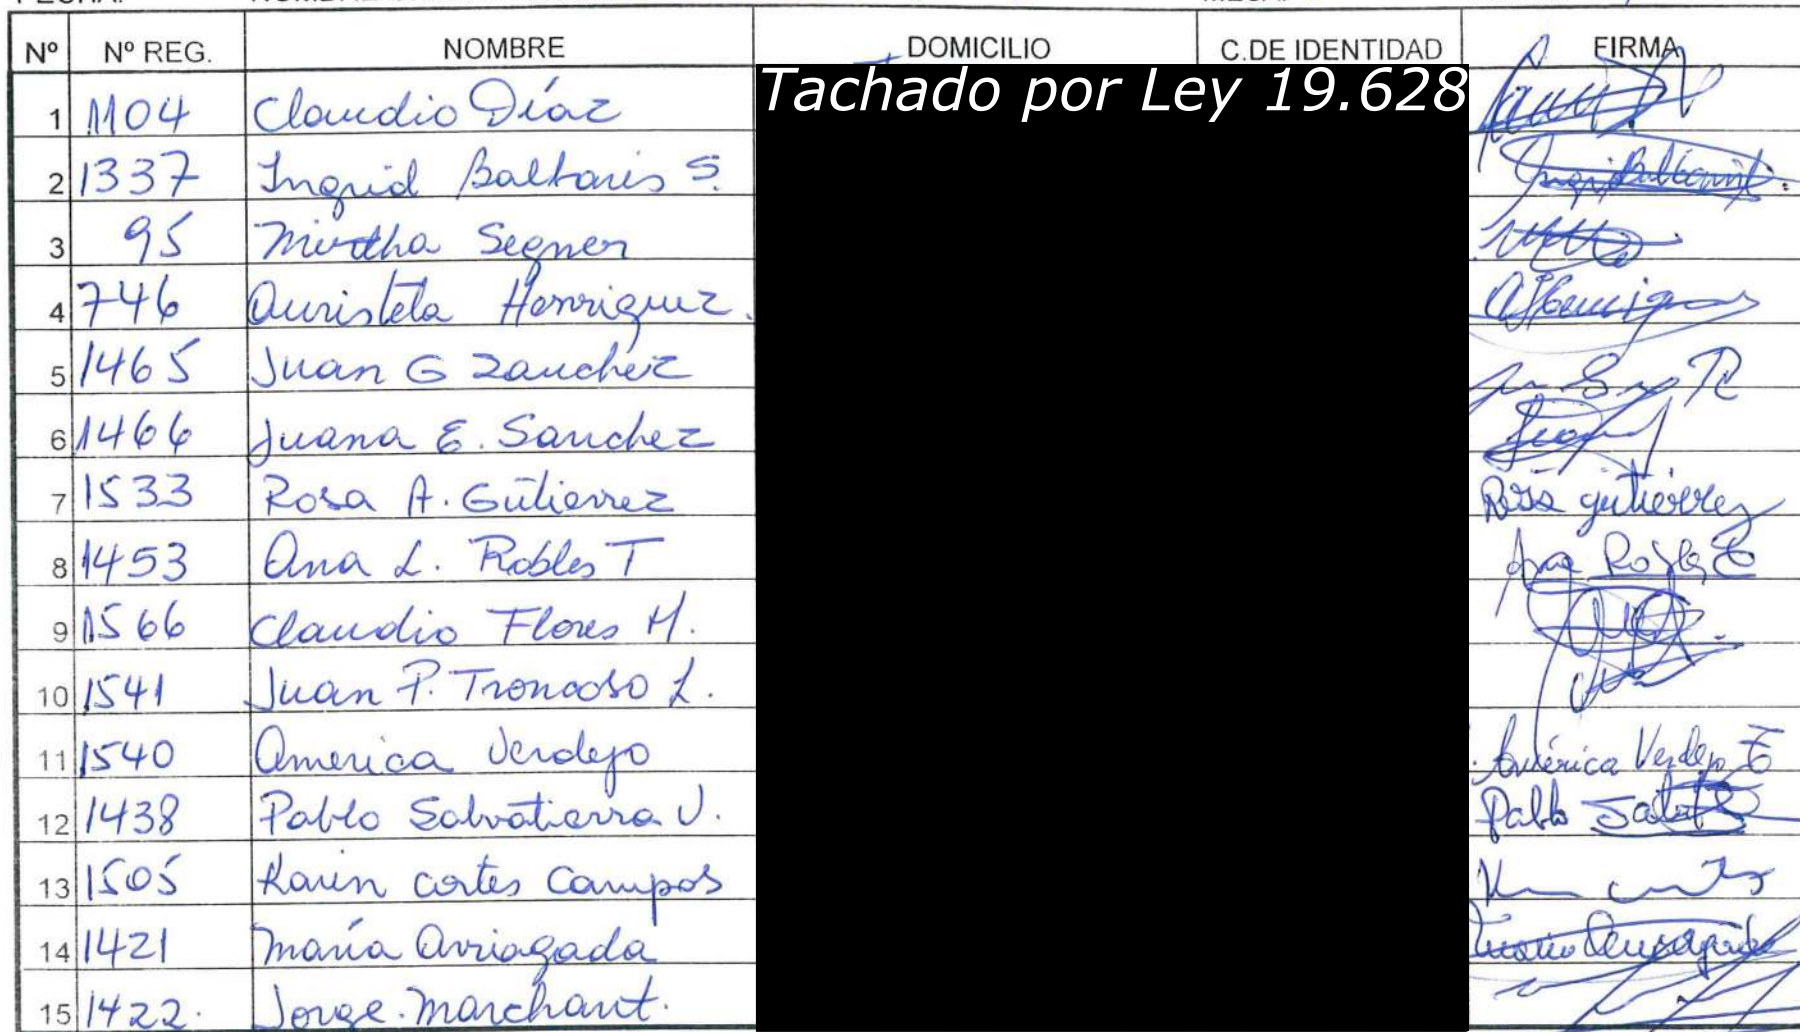 Nº Nº REG. NOMBRE DOMICILIO C.DE IDENTIDAD FIRMA
Tachado por Ley 19.628
1 1104 Claudio Díaz
2 1337 Ingrid Baltaris S.
3 95 Mirtha Segner
4 746 Auristela Henriquez.
5 1465 Juan G Zanchez
6 1466 Juana E. Sanchez
7 1533 Rosa A. Gutierrez Rosa gutiérrez
8 1453 Ana L. Robles T Ana Robles T
9 1566 Claudio Flores M.
10 1541 Juan P. Troncoso L.
11 1540 America Verdejo América Verdejo T
12 1438 Pablo Salvatierra V. Pablo
13 1505 Karin cortes Campos
14 1421 Maria Arriagada
15 1422. Jorge. Marchant.